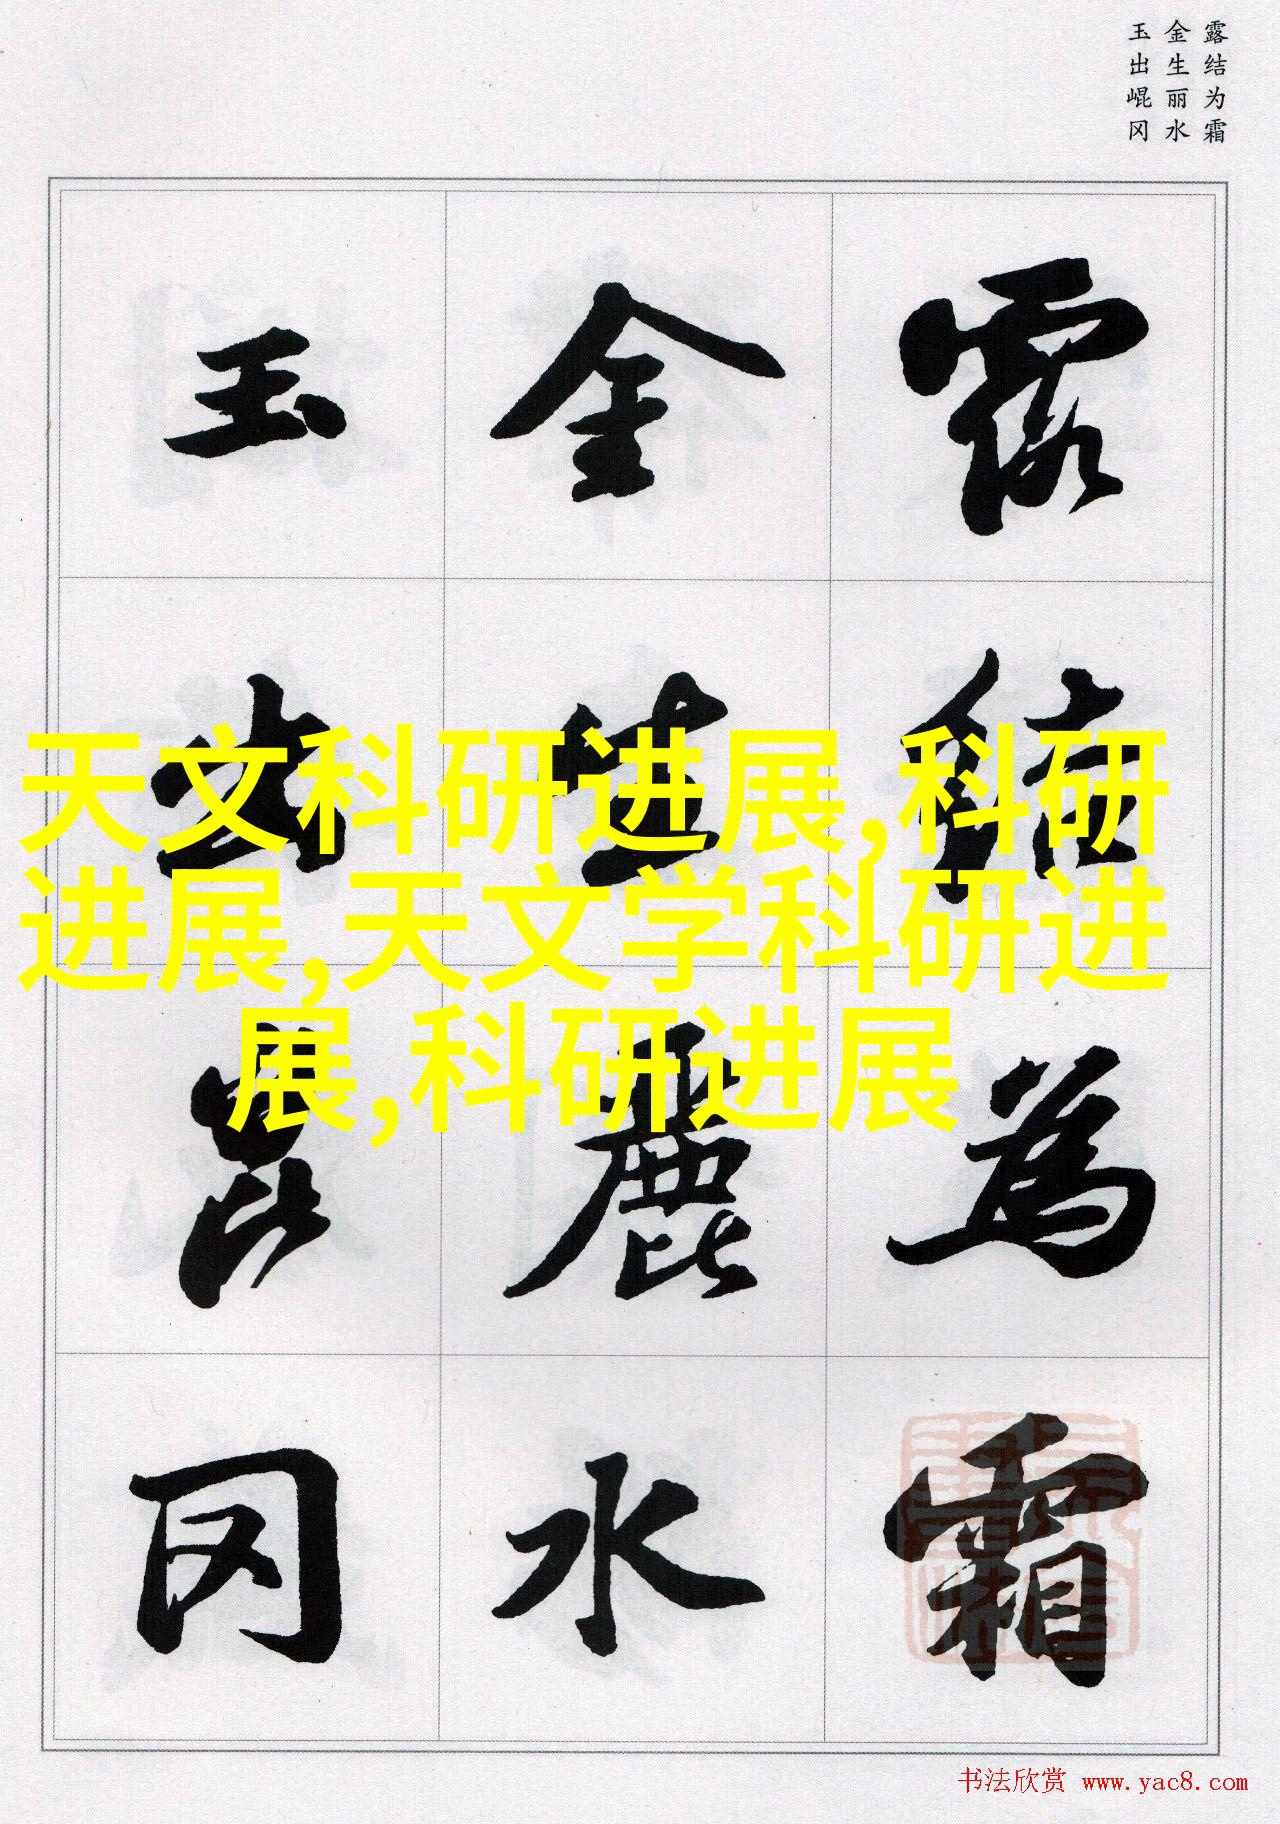 露结为霜
金生丽水
玉出崐冈
露結為霜
金生麗水
玉出崑冈
天文科研进展,科研
进展,天文学科研进
展,科研进展
书法欣赏 www.yac8.com